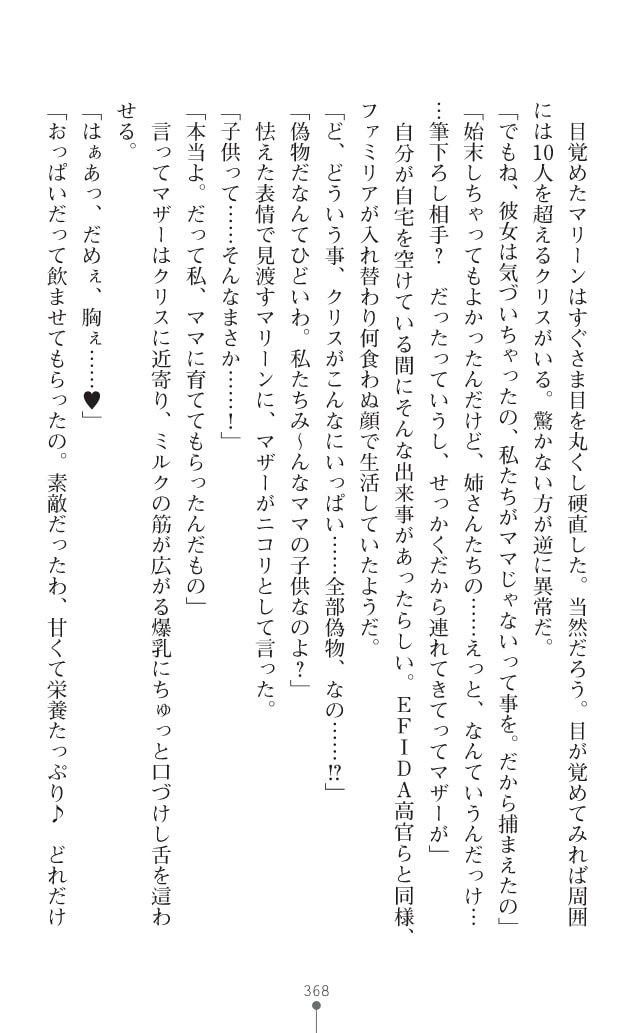 目覚めたマリーンはすぐさま目を丸くし硬直した。当然だろう。目が覚めてみれば周囲
には10人を超えるクリスがいる。驚かない方が逆に異常だ。
「でもね、彼女は気づいちゃったの、私たちがママじゃないって事を。だから捕まえたの」
「始末しちゃってもよかったんだけど、姉さんたちの……えっと、なんていうんだっけ…
…筆下ろし相手？　だったっていうし、せっかくだから連れてきてってマザーが」
　自分が自宅を空けている間にそんな出来事があったらしい。ＥＦＩＤＡ高官らと同様、
ファミリアが入れ替わり何食わぬ顔で生活していたようだ。
「ど、どういう事、クリスがこんなにいっぱい……全部偽物、なの……!?」
「偽物だなんてひどいわ。私たちみ～んなママの子供なのよ？」
　怯えた表情で見渡すマリーンに、マザーがニコリとして言った。
「子供って……そんなまさか……！」
「本当よ。だって私、ママに育ててもらったんだもの」
　言ってマザーはクリスに近寄り、ミルクの筋が広がる爆乳にちゅっと口づけし舌を這わ
せる。
「はぁあっ、だめぇ、胸ぇ……♥」
「おっぱいだって飲ませてもらったの。素敵だったわ、甘くて栄養たっぷり♪　どれだけ
368